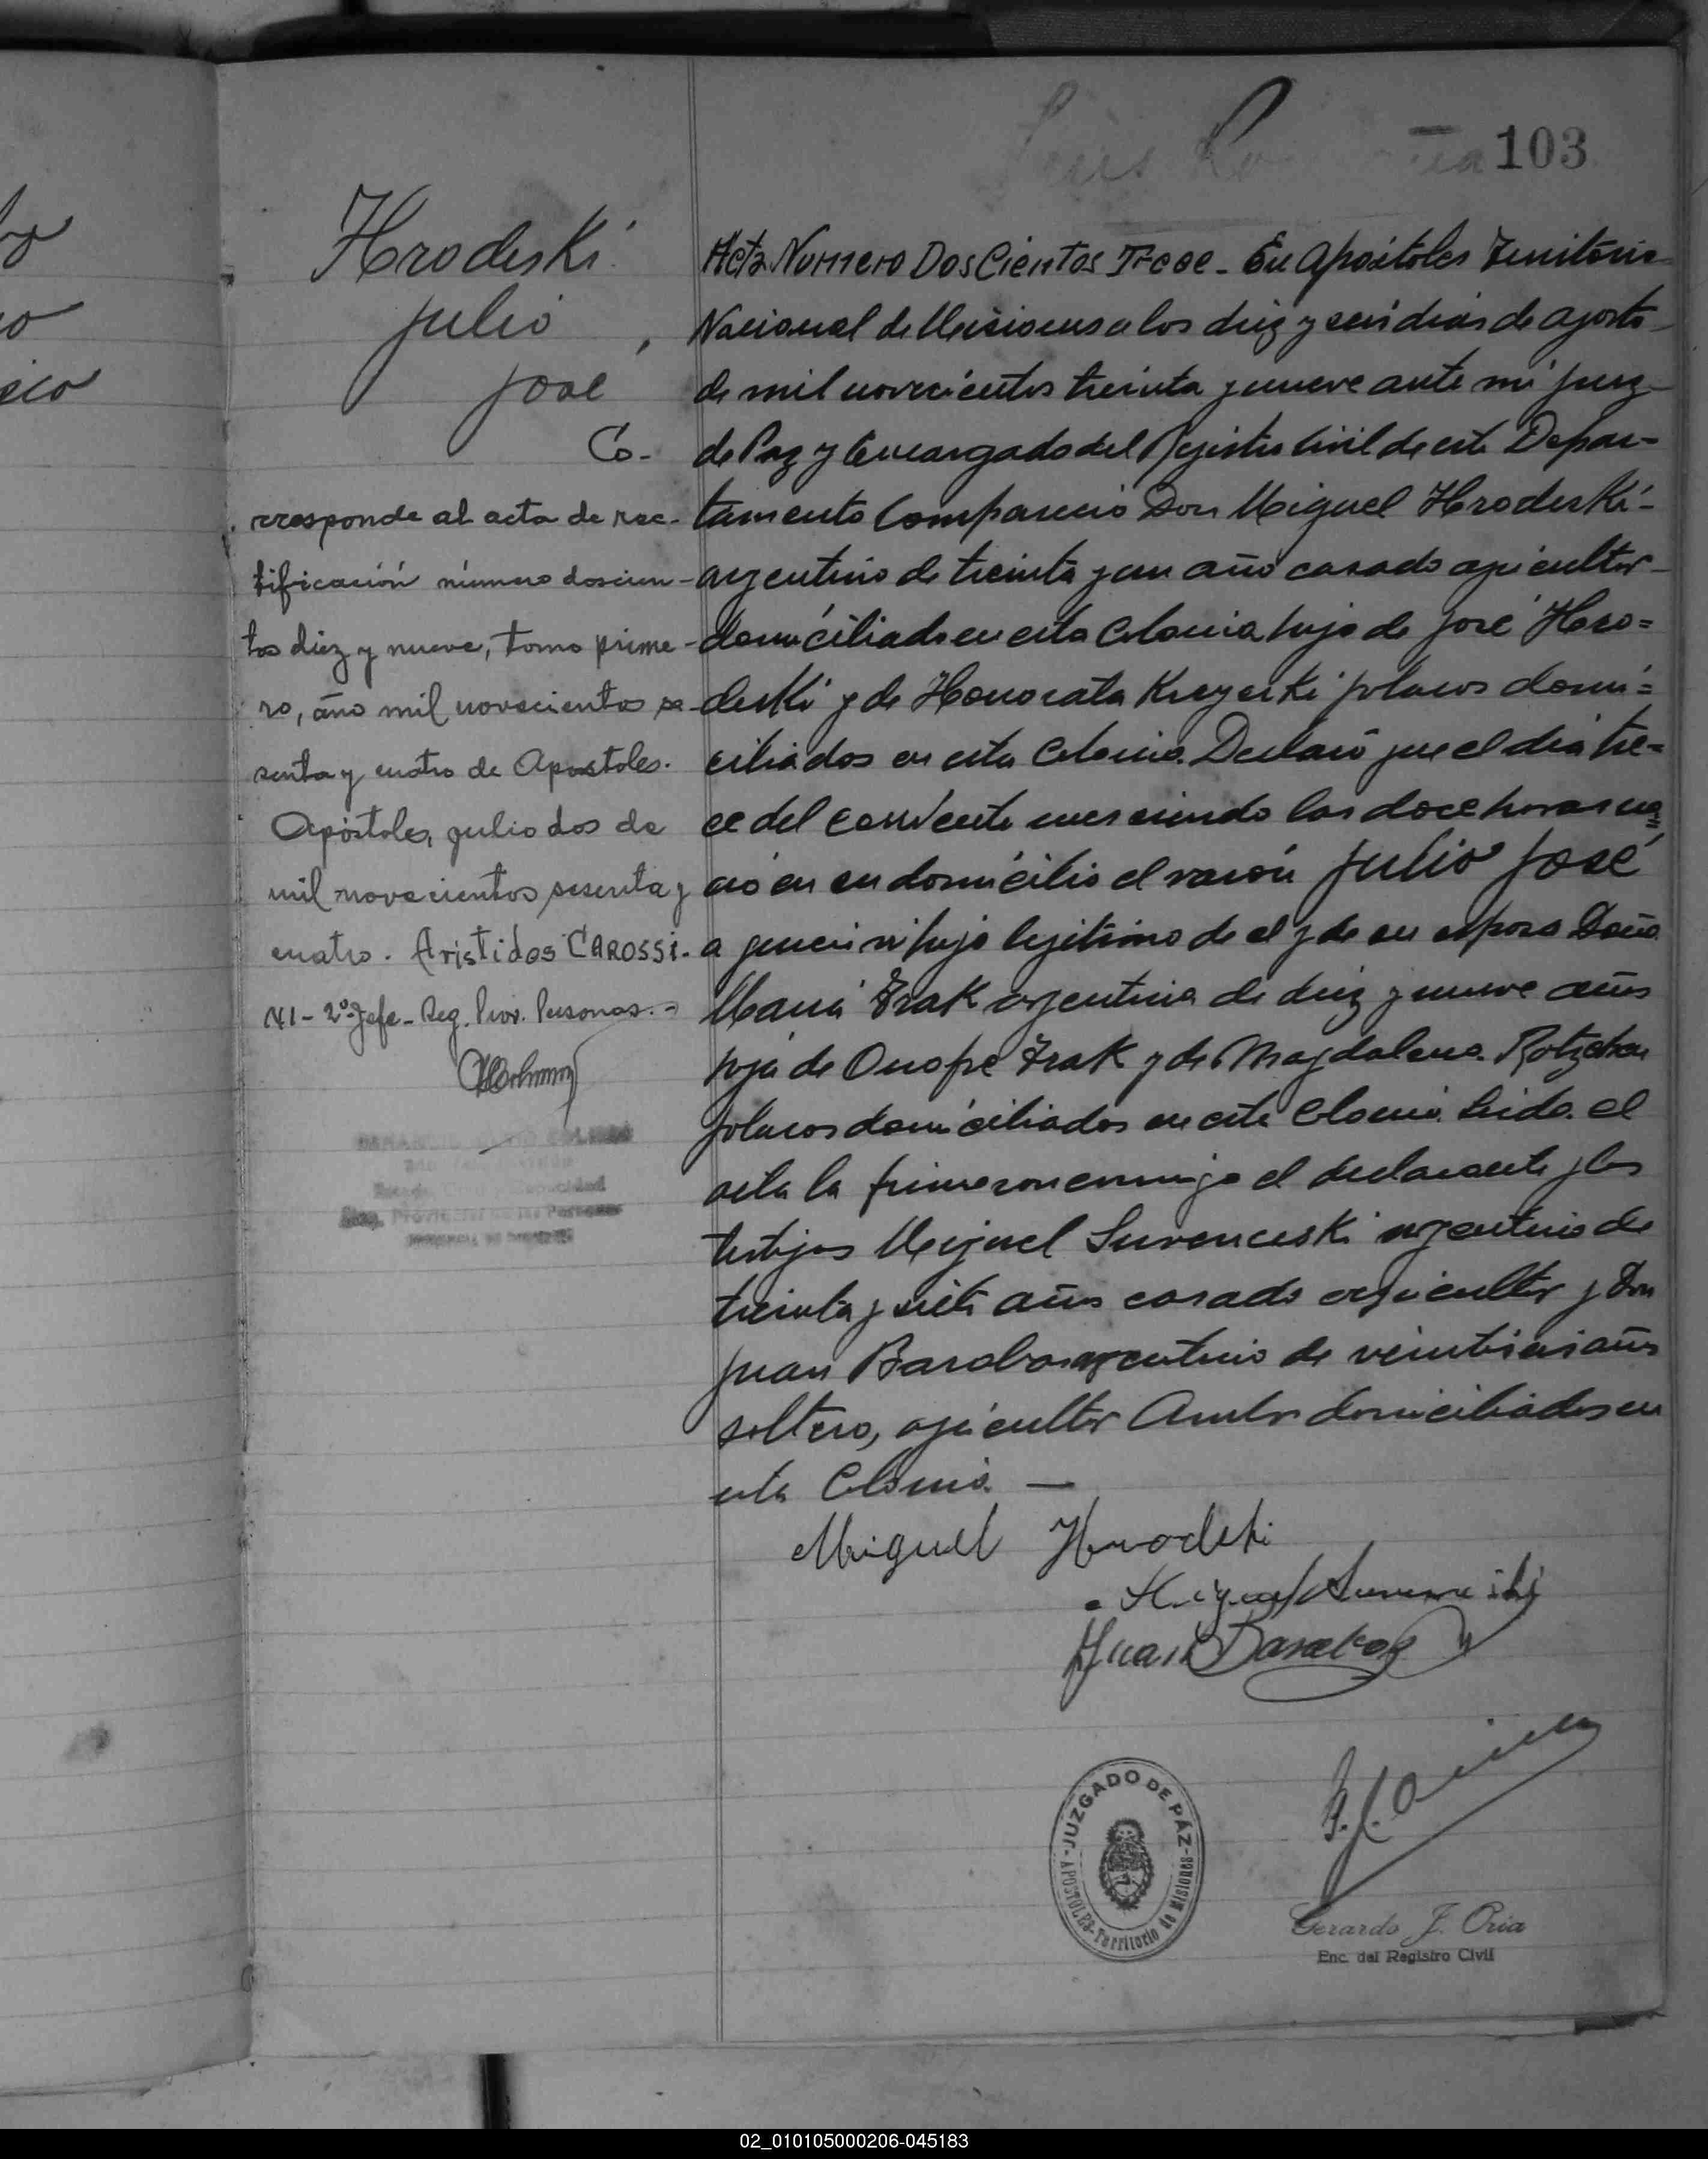 103
Hrodeski
Julio
José
Co-
rresponde al acta de rec-
tificación número doscien-
tos diez y nueve, tomo prime-
ro, año mil novecientos se-
senta y cuatro de Apostoles.
Apóstoles, julio dos de
mil novecientos sesenta y
cuatro. Aristides CAROSSI.
2º Jefe - Reg. Prov. Personas. -
Acta Numero Dos Cientos Trece - En Apóstoles Territorio
Nacional de Misiones a los diez y seis dias de agosto
de mil novecientos treinta y nueve ante mi Juez
de Paz y Encargado del Registro Civil de este Depar-
tamento Compareció Don Miguel Hrodeski-
argentino de treinta y un año casado agricultor
domiciliado en esta Colonia hijo de José Hro=
deski y de Honorata polacos domi=
ciliados en esta Colonia. Declaró que el dia tre=
ce del corriente mes siendo las doce horas na=
ció en su domicilio el varón Julio José
a quien vi hijo legitimo de el y de su esposa Doña
Maria Frak argentina de diez y nueve años
hija de Onofre Frak y de Magdalena
polacos domiciliados en esta Colonia. Leida el
acta la firmaron conmigo el declarante y los
testigos Miguel Surenceski argentino de
treinta y siete años casado agricultor y Don
Juan argentino de veintiseis años
soltero, agricultor Ambos domiciliados en
esta Colonia. —
Miguel Hrodeski
Miguel
Juan
JUZGADO DE PAZ
APOSTOLES - Territorio de Misiones
Gerardo J. Oria
Enc. del Registro Civil
02_010105000206-045183